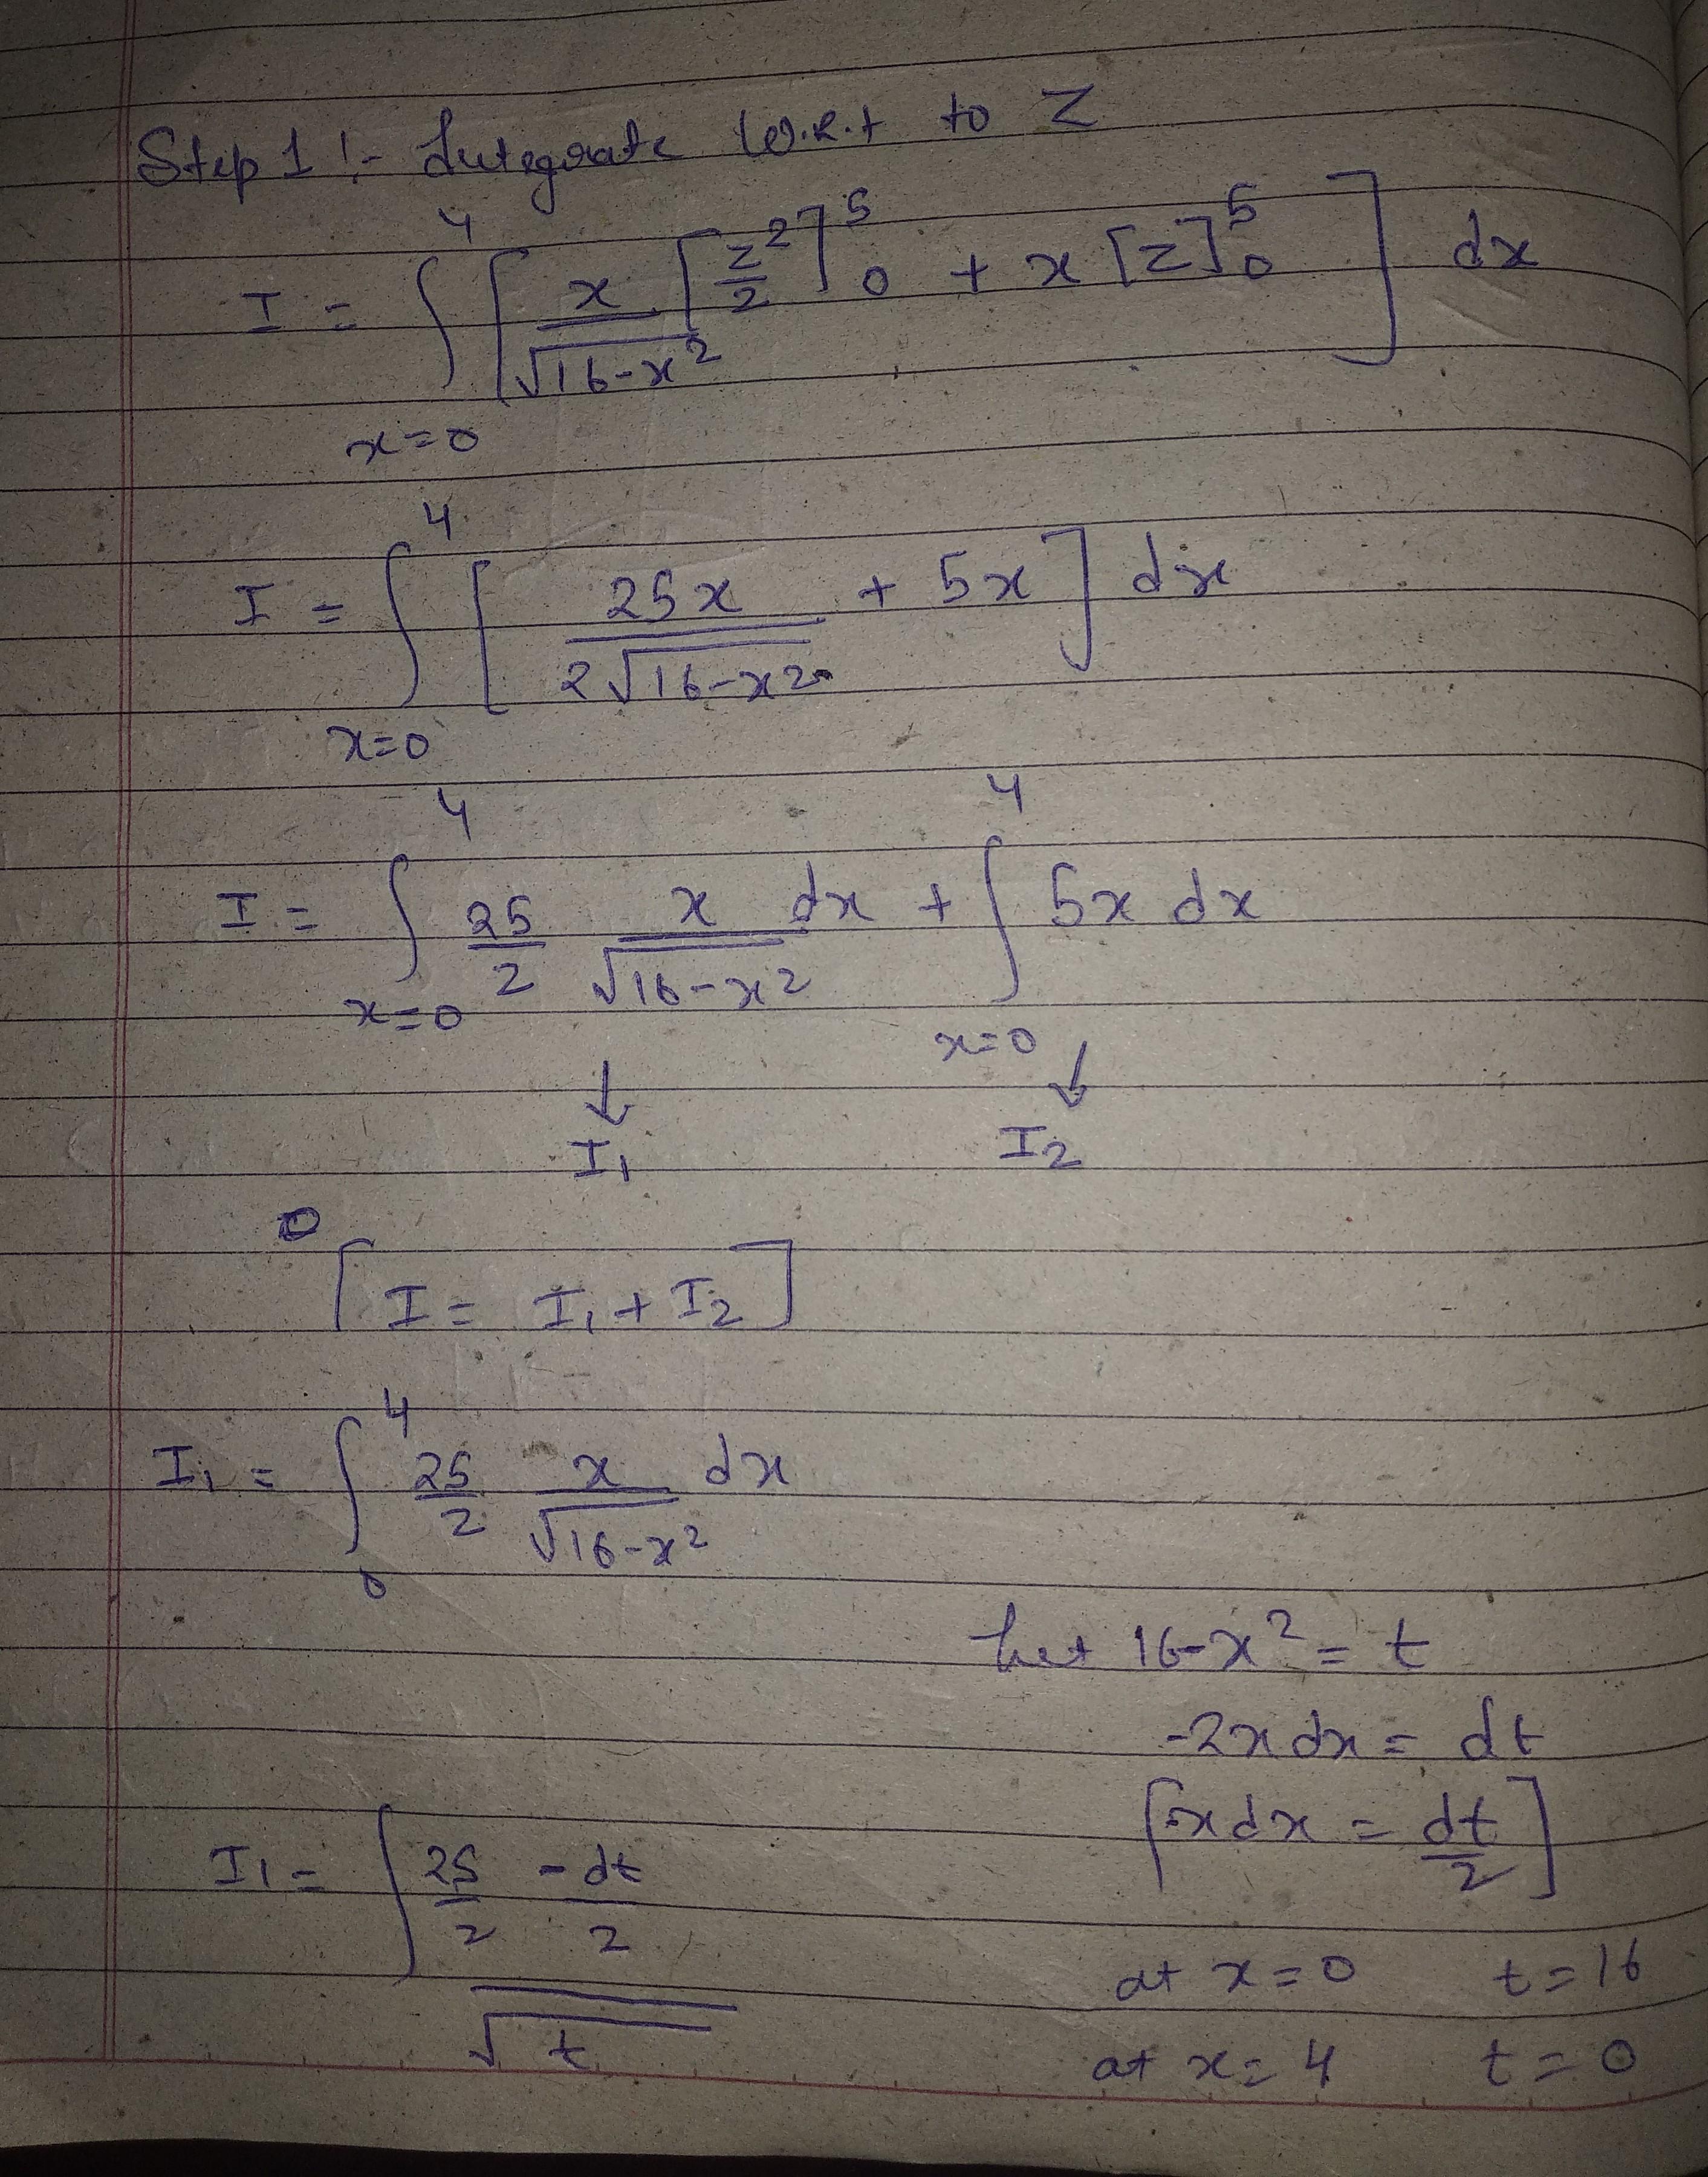 Step 1 :- Integrate W.R.t to Z
I = ∫_{x=0}^{4} [ x/√(16-x²) [z²/2]_0^5 + x [z]_0^5 ] dx
I = ∫_{x=0}^{4} [ 25x/(2√(16-x²)) + 5x ] dx
I = ∫_{x=0}^{4} 25/2 x/√(16-x²) dx + ∫_{x=0}^{4} 5x dx
↓ ↓
I₁ I₂
[I = I₁ + I₂]
I₁ = ∫_0^4 25/2 x/√(16-x²) dx
Let 16-x² = t
-2x dx = dt
[-x dx = dt/2]
I₁ = ∫ 25/2 (-dt/2)/√t
at x=0 t=16
at x=4 t=0